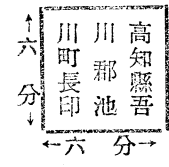 高知縣吾
川郡池
川町長印
←六分→
←六分→